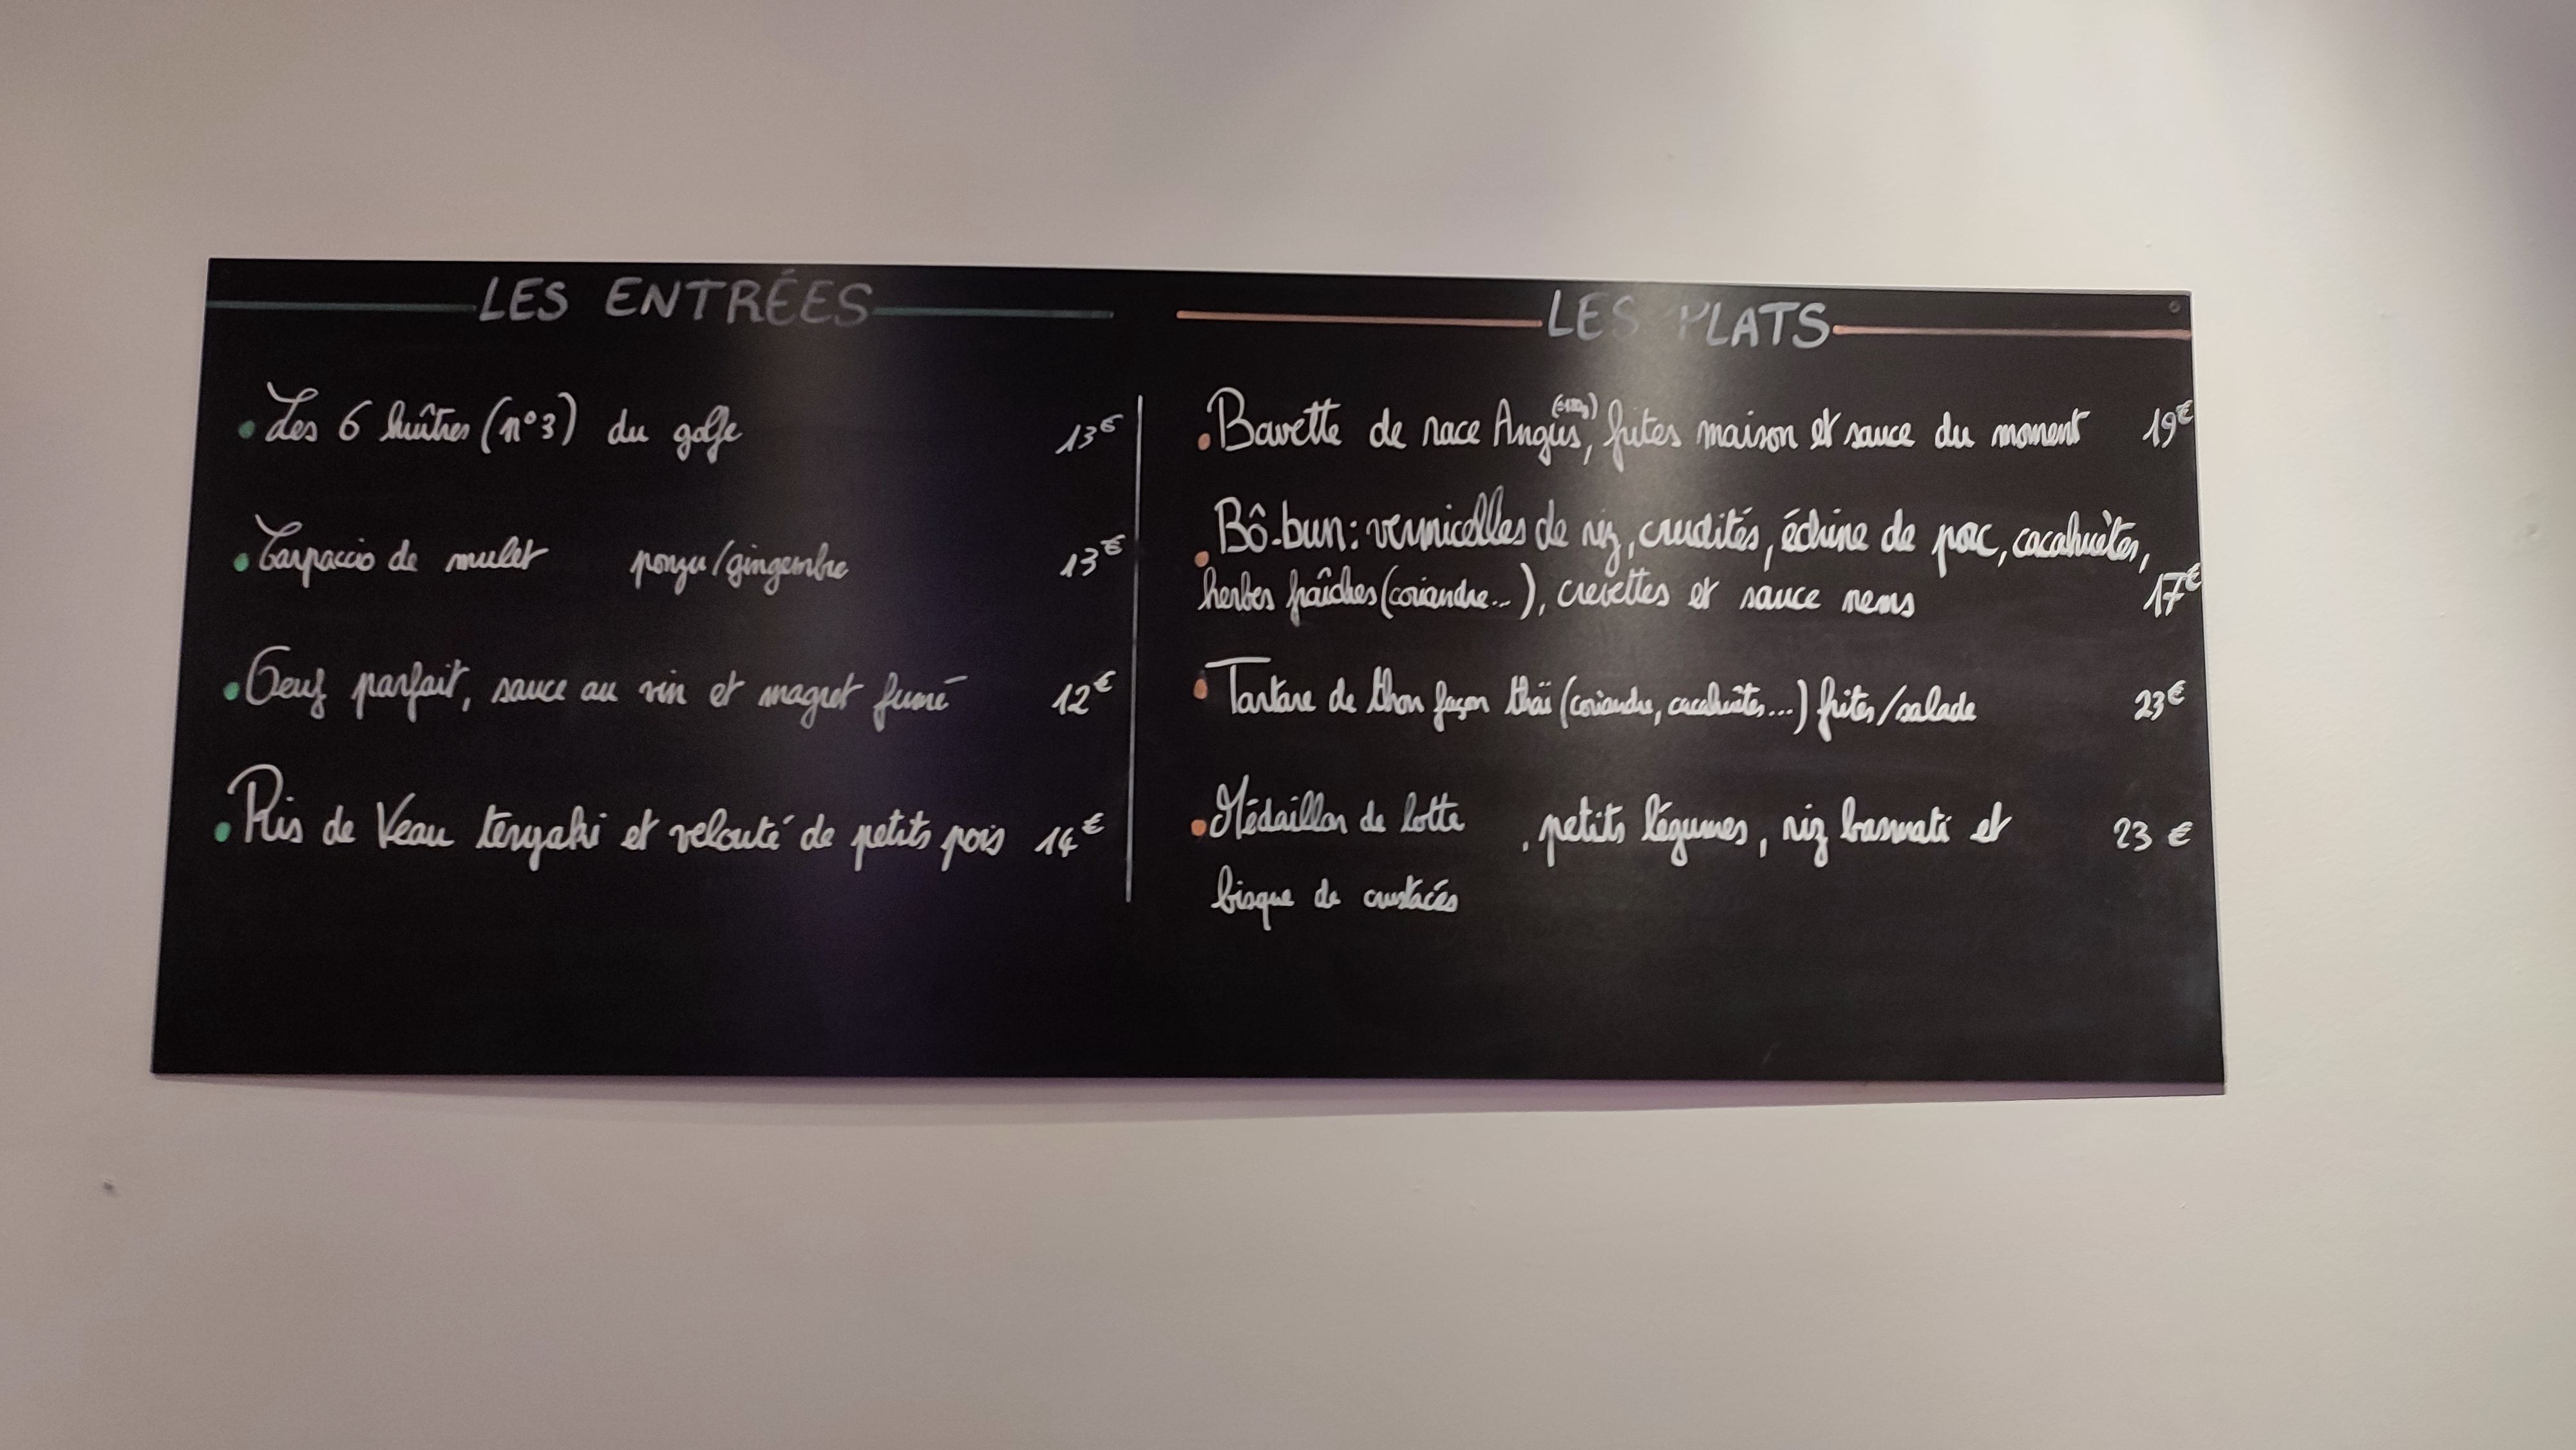 LES ENTRÉES
Les 6 huîtres (n°3) du golfe 13€
Carpaccio de mulet ponzu/gingembre 13€
Oeuf parfait, sauce au vin et magret fumé 12€
Ris de Veau teryaki et velouté de petits pois 14€
LES PLATS
Bavette de race Angus, frites maison et sauce du moment 19€
Bô-bun: vermicelles de riz, crudités, échine de porc, cacahuètes,
herbes fraîches (coriandre...), crevettes et sauce nems 17€
Tartare de thon façon thaï (coriandre, cacahuètes...) frites/salade 23€
Médaillon de lotte , petits légumes, riz basmati et 23 €
bisque de crustacés